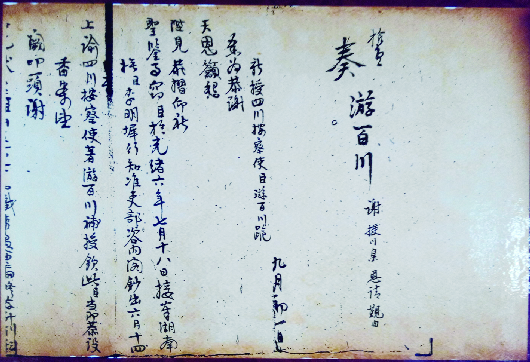 奏
游百川
謝授川臬恩請觀由
九月初一日
新授四川按察使臣游百川跪
奏為恭謝
天恩籲懇
陛見恭摺仰祈
聖鑒事竊臣於光緒六年七月十八日接準湖南
李明墀行知准吏部咨內閣鈔出六月十四
上諭四川按察使著游百川補授欽此臣當即恭設
香案望
闕叩頭謝